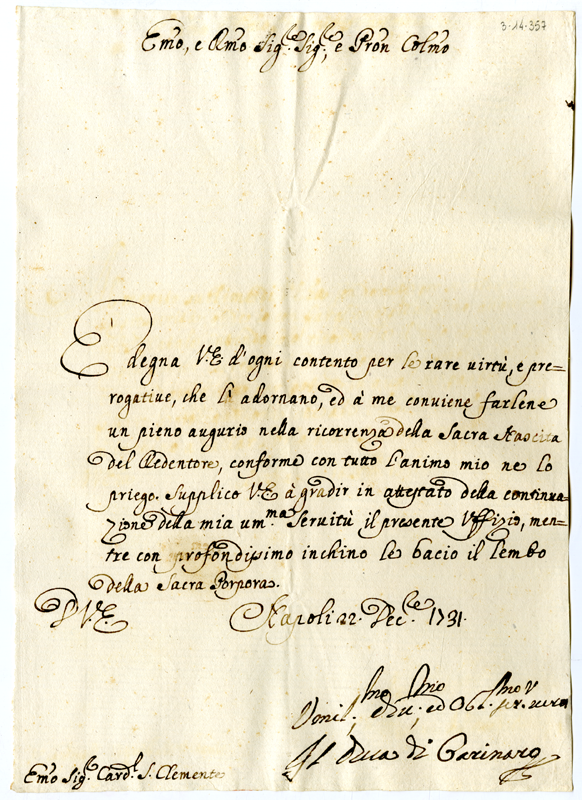 3-14.357
Emo, e Rmo Sig.re Sig.re, e Pron Colmo
E degna V.E. d'ogni contento per le rare virtù, e pre=
rogative, che L'adornano, ed à me conviene farlene
un pieno augurio nella ricorrenza della Sacra Nascita
del Redentore, conforme con tutto l'animo mio ne lo
priego. Supplico V.E. à gradir in attestato della continua=
zione della mia um.ma Servitù il presente Uffizio, men=
tre con profondissimo inchino le bacio il lembo
della Sacra Porpora.
D V.E.
Napoli 22. Dec.re 1731.
Vmil.mo div.mo, ed Obl.mo
Il Duca di Carinaro
Emo Sig.r Card.l S. Clemente